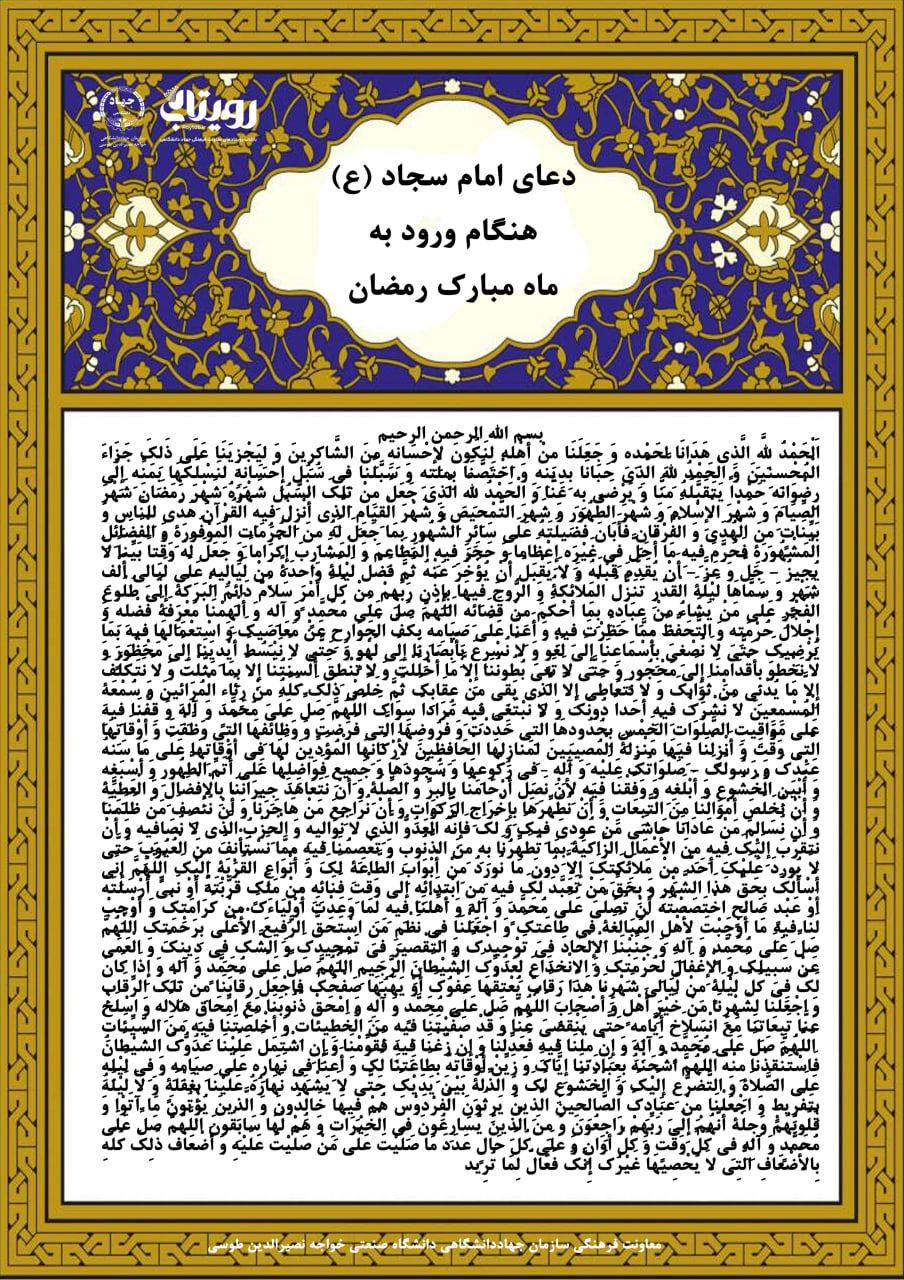 رویتاب
جهاد
دعای امام سجاد (ع)
هنگام ورود به
ماه مبارک رمضان
بسم الله الرحمن الرحیم
اَلْحَمْدُ لِلَّهِ الَّذِی هَدَانَا لِحَمْدِهِ وَ جَعَلَنَا مِنْ أَهْلِهِ لِنَکُونَ لِإِحْسَانِهِ مِنَ الشَّاکِرِینَ وَ لِیَجْزِیَنَا عَلَى ذَلِکَ جَزَاءَ
الْمُحْسِنِینَ وَ الْحَمْدُ لِلَّهِ الَّذِی حَبَانَا بِدِینِهِ وَ اخْتَصَّنَا بِمِلَّتِهِ وَ سَبَّلَنَا فِی سُبُلِ إِحْسَانِهِ لِنَسْلُکَهَا بِمَنِّهِ إِلَى
رِضْوَانِهِ حَمْداً یَتَقَبَّلُهُ مِنَّا وَ یَرْضَى بِهِ عَنَّا وَ الْحَمْدُ لِلَّهِ الَّذِی جَعَلَ مِنْ تِلْکَ السُّبُلِ شَهْرَهُ شَهْرَ رَمَضَانَ شَهْرَ
الصِّیَامِ وَ شَهْرَ الْإِسْلَامِ وَ شَهْرَ الطَّهُورِ وَ شَهْرَ التَّمْحِیصِ وَ شَهْرَ الْقِیَامِ الَّذِی أُنْزِلَ فِیهِ الْقُرْآنُ هُدًى لِلنَّاسِ وَ
بَیِّنَاتٍ مِنَ الْهُدَى وَ الْفُرْقَانِ فَأَبَانَ فَضِیلَتَهُ عَلَى سَائِرِ الشُّهُورِ بِمَا جَعَلَ لَهُ مِنَ الْحُرُمَاتِ الْمَوْفُورَةِ وَ الْفَضَائِلِ
الْمَشْهُورَةِ فَحَرَّمَ فِیهِ مَا أَحَلَّ فِی غَیْرِهِ إِعْظَاماً وَ حَجَرَ فِیهِ الْمَطَاعِمَ وَ الْمَشَارِبَ إِکْرَاماً وَ جَعَلَ لَهُ وَقْتاً بَیِّناً لَا
یُجِیزُ – جَلَّ وَ عَزَّ – أَنْ یُقَدَّمَ قَبْلَهُ وَ لَا یَقْبَلُ أَنْ یُؤَخَّرَ عَنْهُ ثُمَّ فَضَّلَ لَیْلَةً وَاحِدَةً مِنْ لَیَالِیهِ عَلَى لَیَالِی أَلْفِ
شَهْرٍ وَ سَمَّاهَا لَیْلَةَ الْقَدْرِ تَنَزَّلُ الْمَلَائِکَةُ وَ الرُّوحُ فِیهَا بِإِذْنِ رَبِّهِمْ مِنْ کُلِّ أَمْرٍ سَلَامٌ دَائِمُ الْبَرَکَةِ إِلَى طُلُوعِ
الْفَجْرِ عَلَى مَنْ یَشَاءُ مِنْ عِبَادِهِ بِمَا أَحْکَمَ مِنْ قَضَائِهِ اللَّهُمَّ صَلِّ عَلَى مُحَمَّدٍ وَ آلِهِ وَ أَلْهِمْنَا مَعْرِفَةَ فَضْلِهِ وَ
إِجْلَالَ حُرْمَتِهِ وَ التَّحَفُّظَ مِمَّا حَظَرْتَ فِیهِ وَ أَعِنَّا عَلَى صِیَامِهِ بِکَفِّ الْجَوَارِحِ عَنْ مَعَاصِیکَ وَ اسْتِعْمَالِهَا فِیهِ بِمَا
یُرْضِیکَ حَتَّى لَا نُصْغِیَ بِأَسْمَاعِنَا إِلَى لَغْوٍ وَ لَا نُسْرِعَ بِأَبْصَارِنَا إِلَى لَهْوٍ وَ حَتَّى لَا نَبْسُطَ أَیْدِیَنَا إِلَى مَحْظُورٍ وَ
لَا نَخْطُوَ بِأَقْدَامِنَا إِلَى مَحْجُورٍ وَ حَتَّى لَا تَعِیَ بُطُونُنَا إِلَّا مَا أَحْلَلْتَ وَ لَا تَنْطِقَ أَلْسِنَتُنَا إِلَّا بِمَا مَثَّلْتَ وَ لَا نَتَکَلَّفَ
إِلَّا مَا یُدْنِی مِنْ ثَوَابِکَ وَ لَا نَتَعَاطَى إِلَّا الَّذِی یَقِی مِنْ عِقَابِکَ ثُمَّ خَلِّصْ ذَلِکَ کُلَّهُ مِنْ رِئَاءِ الْمُرَائِینَ وَ سُمْعَةِ
الْمُسْمِعِینَ لَا نُشْرِکُ فِیهِ أَحَداً دُونَکَ وَ لَا نَبْتَغِی فِیهِ مُرَاداً سِوَاکَ اللَّهُمَّ صَلِّ عَلَى مُحَمَّدٍ وَ آلِهِ وَ قِفْنَا فِیهِ
عَلَى مَوَاقِیتِ الصَّلَوَاتِ الْخَمْسِ بِحُدُودِهَا الَّتِی حَدَّدْتَ وَ فُرُوضِهَا الَّتِی فَرَضْتَ وَ وَظَائِفِهَا الَّتِی وَظَّفْتَ وَ أَوْقَاتِهَا
الَّتِی وَقَّتَّ وَ أَنْزِلْنَا فِیهَا مَنْزِلَةَ الْمُصِیبِینَ لِمَنَازِلِهَا الْحَافِظِینَ لِأَرْکَانِهَا الْمُؤَدِّینَ لَهَا فِی أَوْقَاتِهَا عَلَى مَا سَنَّهُ
عَبْدُکَ وَ رَسُولُکَ – صَلَوَاتُکَ عَلَیْهِ وَ آلِهِ – فِی رُکُوعِهَا وَ سُجُودِهَا وَ جَمِیعِ فَوَاضِلِهَا عَلَى أَتَمِّ الطَّهُورِ وَ أَسْبَغِهِ
وَ أَبْیَنِ الْخُشُوعِ وَ أَبْلَغِهِ وَ وَفِّقْنَا فِیهِ لِأَنْ نَصِلَ أَرْحَامَنَا بِالْبِرِّ وَ الصِّلَةِ وَ أَنْ نَتَعَاهَدَ جِیرَانَنَا بِالْإِفْضَالِ وَ الْعَطِیَّةِ
وَ أَنْ نُخَلِّصَ أَمْوَالَنَا مِنَ التَّبِعَاتِ وَ أَنْ نُطَهِّرَهَا بِإِخْرَاجِ الزَّکَوَاتِ وَ أَنْ نُرَاجِعَ مَنْ هَاجَرَنَا وَ أَنْ نُنْصِفَ مَنْ ظَلَمَنَا
وَ أَنْ نُسَالِمَ مَنْ عَادَانَا حَاشَى مَنْ عُودِیَ فِیکَ وَ لَکَ فَإِنَّهُ الْعَدُوُّ الَّذِی لَا نُوَالِیهِ وَ الْحِزْبُ الَّذِی لَا نُصَافِیهِ وَ أَنْ
نَتَقَرَّبَ إِلَیْکَ فِیهِ مِنَ الْأَعْمَالِ الزَّاکِیَةِ بِمَا تُطَهِّرُنَا بِهِ مِنَ الذُّنُوبِ وَ تَعْصِمُنَا فِیهِ مِمَّا نَسْتَأْنِفُ مِنَ الْعُیُوبِ حَتَّى
لَا یُورِدَ عَلَیْکَ أَحَدٌ مِنْ مَلَائِکَتِکَ إِلَّا دُونَ مَا نُورِدُ مِنْ أَبْوَابِ الطَّاعَةِ لَکَ وَ أَنْوَاعِ الْقُرْبَةِ إِلَیْکَ اللَّهُمَّ إِنِّی
أَسْأَلُکَ بِحَقِّ هَذَا الشَّهْرِ وَ بِحَقِّ مَنْ تَعَبَّدَ لَکَ فِیهِ مِنِ ابْتِدَائِهِ إِلَى وَقْتِ فَنَائِهِ مِنْ مَلَکٍ قَرَّبْتَهُ أَوْ نَبِیٍّ أَرْسَلْتَهُ
أَوْ عَبْدٍ صَالِحٍ اخْتَصَصْتَهُ أَنْ تُصَلِّیَ عَلَى مُحَمَّدٍ وَ آلِهِ وَ أَهِّلْنَا فِیهِ لِمَا وَعَدْتَ أَوْلِیَاءَکَ مِنْ کَرَامَتِکَ وَ أَوْجِبْ
لَنَا فِیهِ مَا أَوْجَبْتَ لِأَهْلِ الْمُبَالَغَةِ فِی طَاعَتِکَ وَ اجْعَلْنَا فِی نَظْمِ مَنِ اسْتَحَقَّ الرَّفِیعَ الْأَعْلَى بِرَحْمَتِکَ اللَّهُمَّ
صَلِّ عَلَى مُحَمَّدٍ وَ آلِهِ وَ جَنِّبْنَا الْإِلْحَادَ فِی تَوْحِیدِکَ وَ التَّقْصِیرَ فِی تَمْجِیدِکَ وَ الشَّکَّ فِی دِینِکَ وَ الْعَمَى
عَنْ سَبِیلِکَ وَ الْإِغْفَالَ لِحُرْمَتِکَ وَ الِانْخِدَاعَ لِعَدُوِّکَ الشَّیْطَانِ الرَّجِیمِ اللَّهُمَّ صَلِّ عَلَى مُحَمَّدٍ وَ آلِهِ وَ إِذَا کَانَ
لَکَ فِی کُلِّ لَیْلَةٍ مِنْ لَیَالِی شَهْرِنَا هَذَا رِقَابٌ یُعْتِقُهَا عَفْوُکَ أَوْ یَهَبُهَا صَفْحُکَ فَاجْعَلْ رِقَابَنَا مِنْ تِلْکَ الرِّقَابِ
وَ اجْعَلْنَا لِشَهْرِنَا مِنْ خَیْرِ أَهْلٍ وَ أَصْحَابٍ اللَّهُمَّ صَلِّ عَلَى مُحَمَّدٍ وَ آلِهِ وَ امْحَقْ ذُنُوبَنَا مَعَ امِّحَاقِ هِلَالِهِ وَ اسْلَخْ
عَنَّا تَبِعَاتِنَا مَعَ انْسِلَاخِ أَیَّامِهِ حَتَّى یَنْقَضِیَ عَنَّا وَ قَدْ صَفَّیْتَنَا فِیهِ مِنَ الْخَطِیئَاتِ وَ أَخْلَصْتَنَا فِیهِ مِنَ السَّیِّئَاتِ
اللَّهُمَّ صَلِّ عَلَى مُحَمَّدٍ وَ آلِهِ وَ إِنْ مِلْنَا فِیهِ فَعَدِّلْنَا وَ إِنْ زُغْنَا فِیهِ فَقَوِّمْنَا وَ إِنِ اشْتَمَلَ عَلَیْنَا عَدُوُّکَ الشَّیْطَانُ
فَاسْتَنْقِذْنَا مِنْهُ اللَّهُمَّ اشْحَنْهُ بِعِبَادَتِنَا إِیَّاکَ وَ زَیِّنْ أَوْقَاتَهُ بِطَاعَتِنَا لَکَ وَ أَعِنَّا فِی نَهَارِهِ عَلَى صِیَامِهِ وَ فِی لَیْلِهِ
عَلَى الصَّلَاةِ وَ التَّضَرُّعِ إِلَیْکَ وَ الْخُشُوعِ لَکَ وَ الذِّلَّةِ بَیْنَ یَدَیْکَ حَتَّى لَا یَشْهَدَ نَهَارُهُ عَلَیْنَا بِغَفْلَةٍ وَ لَا لَیْلُهُ
بِتَفْرِیطٍ وَ اجْعَلْنَا مِنْ عِبَادِکَ الصَّالِحِینَ الَّذِینَ یَرِثُونَ الْفِرْدَوْسَ هُمْ فِیهَا خَالِدُونَ وَ الَّذِینَ یُؤْتُونَ مَا آتَوْا وَ
قُلُوبُهُمْ وَجِلَةٌ أَنَّهُمْ إِلَى رَبِّهِمْ رَاجِعُونَ وَ مِنَ الَّذِینَ یُسَارِعُونَ فِی الْخَیْرَاتِ وَ هُمْ لَهَا سَابِقُونَ اللَّهُمَّ صَلِّ عَلَى
مُحَمَّدٍ وَ آلِهِ فِی کُلِّ وَقْتٍ وَ کُلِّ أَوَانٍ وَ عَلَى کُلِّ حَالٍ عَدَدَ مَا صَلَّیْتَ عَلَى مَنْ صَلَّیْتَ عَلَیْهِ وَ أَضْعَافَ ذَلِکَ کُلِّهِ
بِالْأَضْعَافِ الَّتِی لَا یُحْصِیهَا غَیْرُکَ إِنَّکَ فَعَّالٌ لِمَا تُرِیدُ
معاونت فرهنگی سازمان جهاددانشگاهی دانشگاه صنعتی خواجه نصیرالدین طوسی